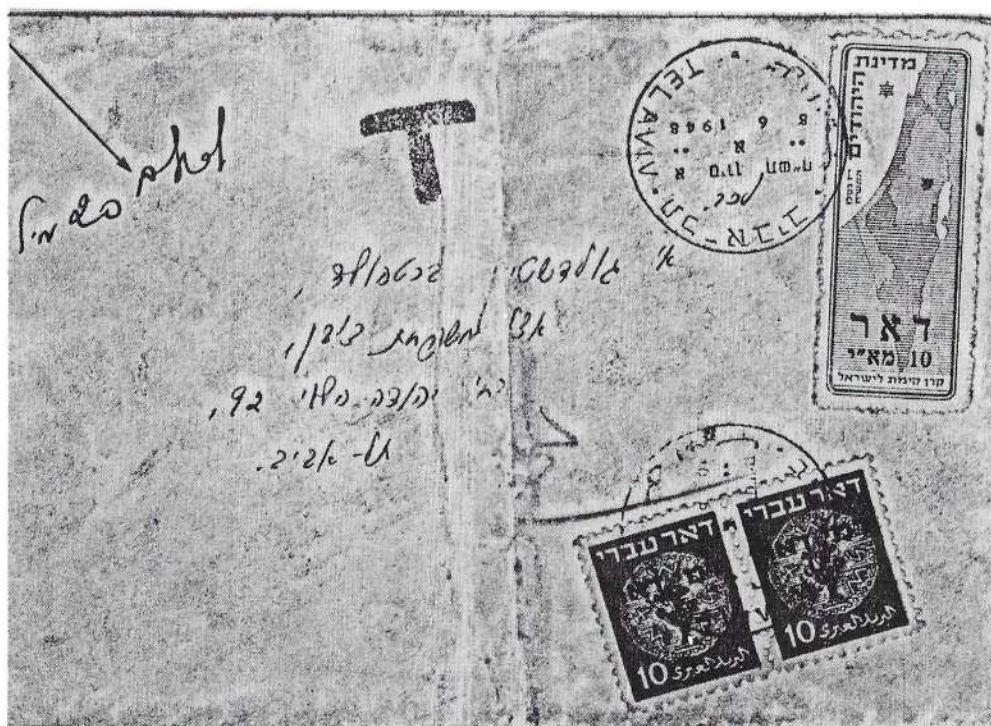 שולם
20 מיל
T
תל-אביב • TEL AVIV
8 6 1948
א סיון תש״ח
א
מדינת
היהודים
דאר
10 מא״י
קרן קימת לישראל
א׳ גולדשטיין ברטהולד,
אצל משפחת
רח׳ יהודה הלוי 92,
תל-אביב.
דאר עברי
البريد العبري
10
דאר עברי
البريد العبري
10